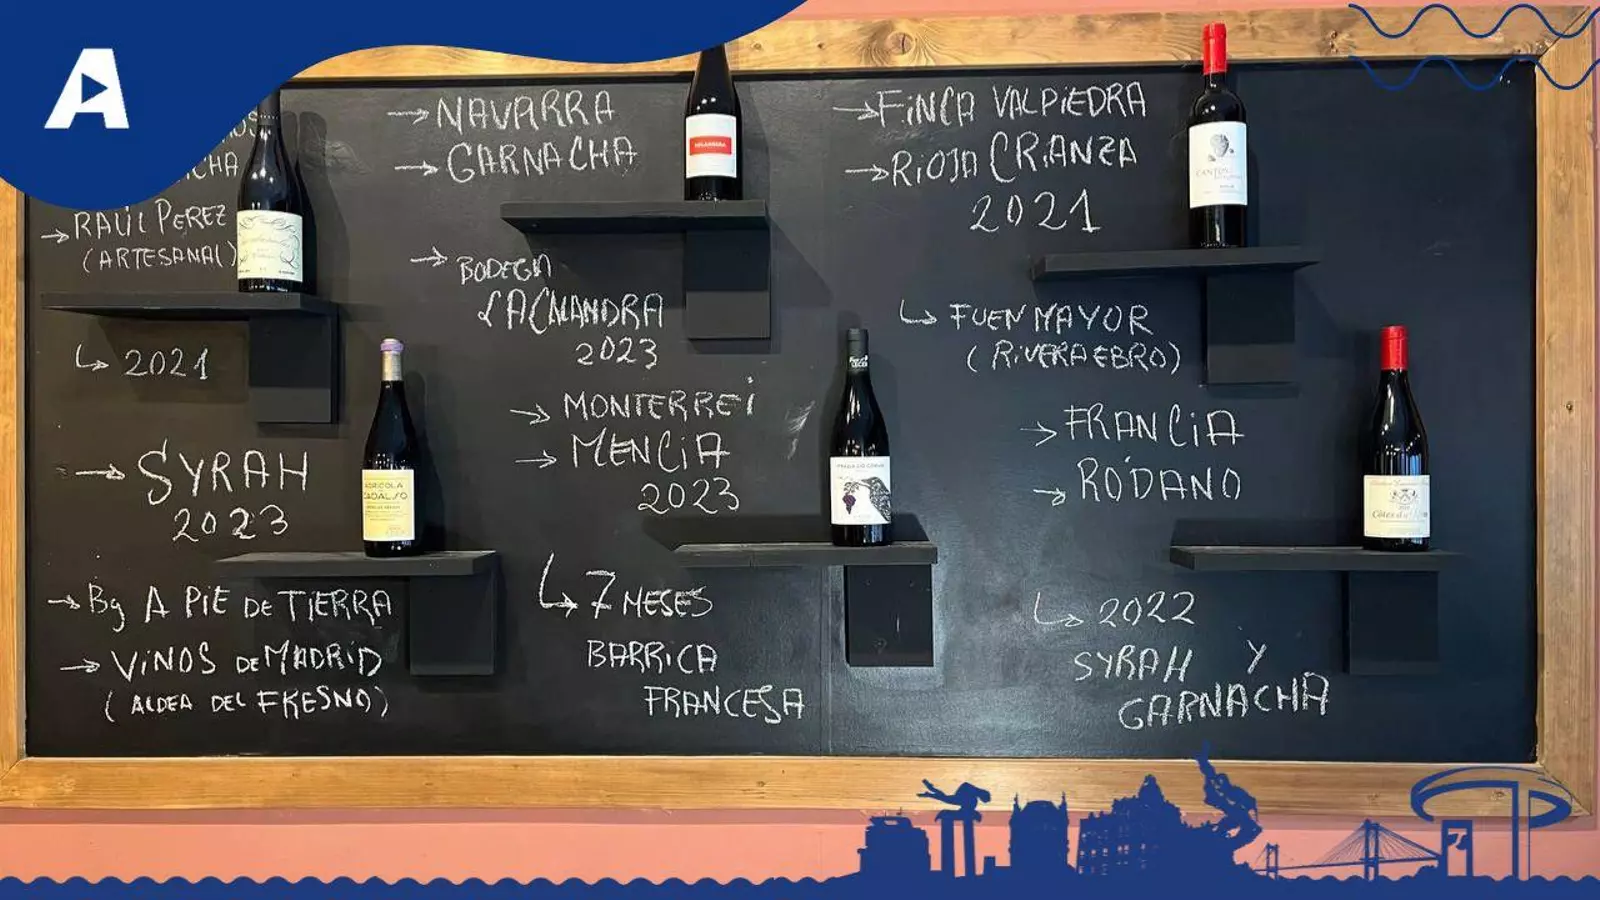 A
→ RAÚL PEREZ
(ARTESANAL)
↳ 2021
→ SYRAH
2023
→ Bg A PIE DE TIERRA
→ VINOS DE MADRID
(ALDEA DEL FRESNO)
→ NAVARRA
→ GARNACHA
→ BODEGA
LACALANDRA
2023
→ MONTERREI
→ MENCIA
2023
↳ 7 MESES
BARRICA
FRANCESA
→ FINCA VALPIEDRA
→ RIOJA CRIANZA
2021
↳ FUENMAYOR
(RIVERA EBRO)
→ FRANCIA
→ RÓDANO
↳ 2022
SYRAH Y
GARNACHA